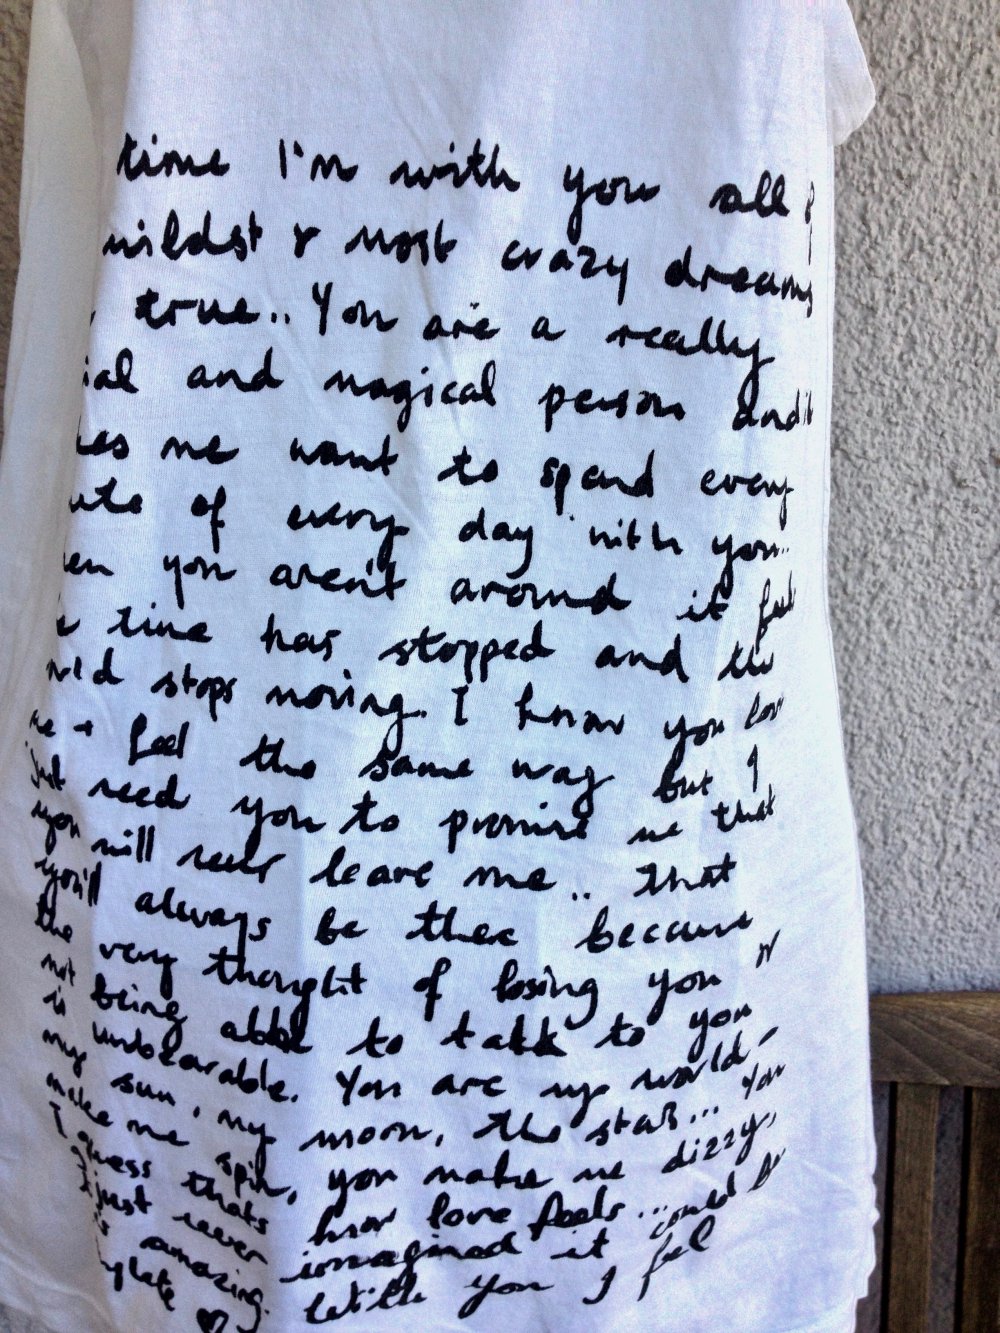 time I'm with you all
wildest & most crazy dreams
true.. You are a really
ial and magical person and
es me want to spend every
ute of every day with you..
en you aren't around it feel
time has stopped and the
rld stops moving. I know you love
me + feel the same way but I
just need you to promise me that
you will never leave me.. that
you'll always be there because
the very thought of losing you or
not being able to talk to you
is unbearable. You are my world,
my sun, my moon, the stars... You
make me spin, you make me dizzy,
I guess thats how love feels... could be
I just never imagined it
is amazing. With you I feel
mplete ♡